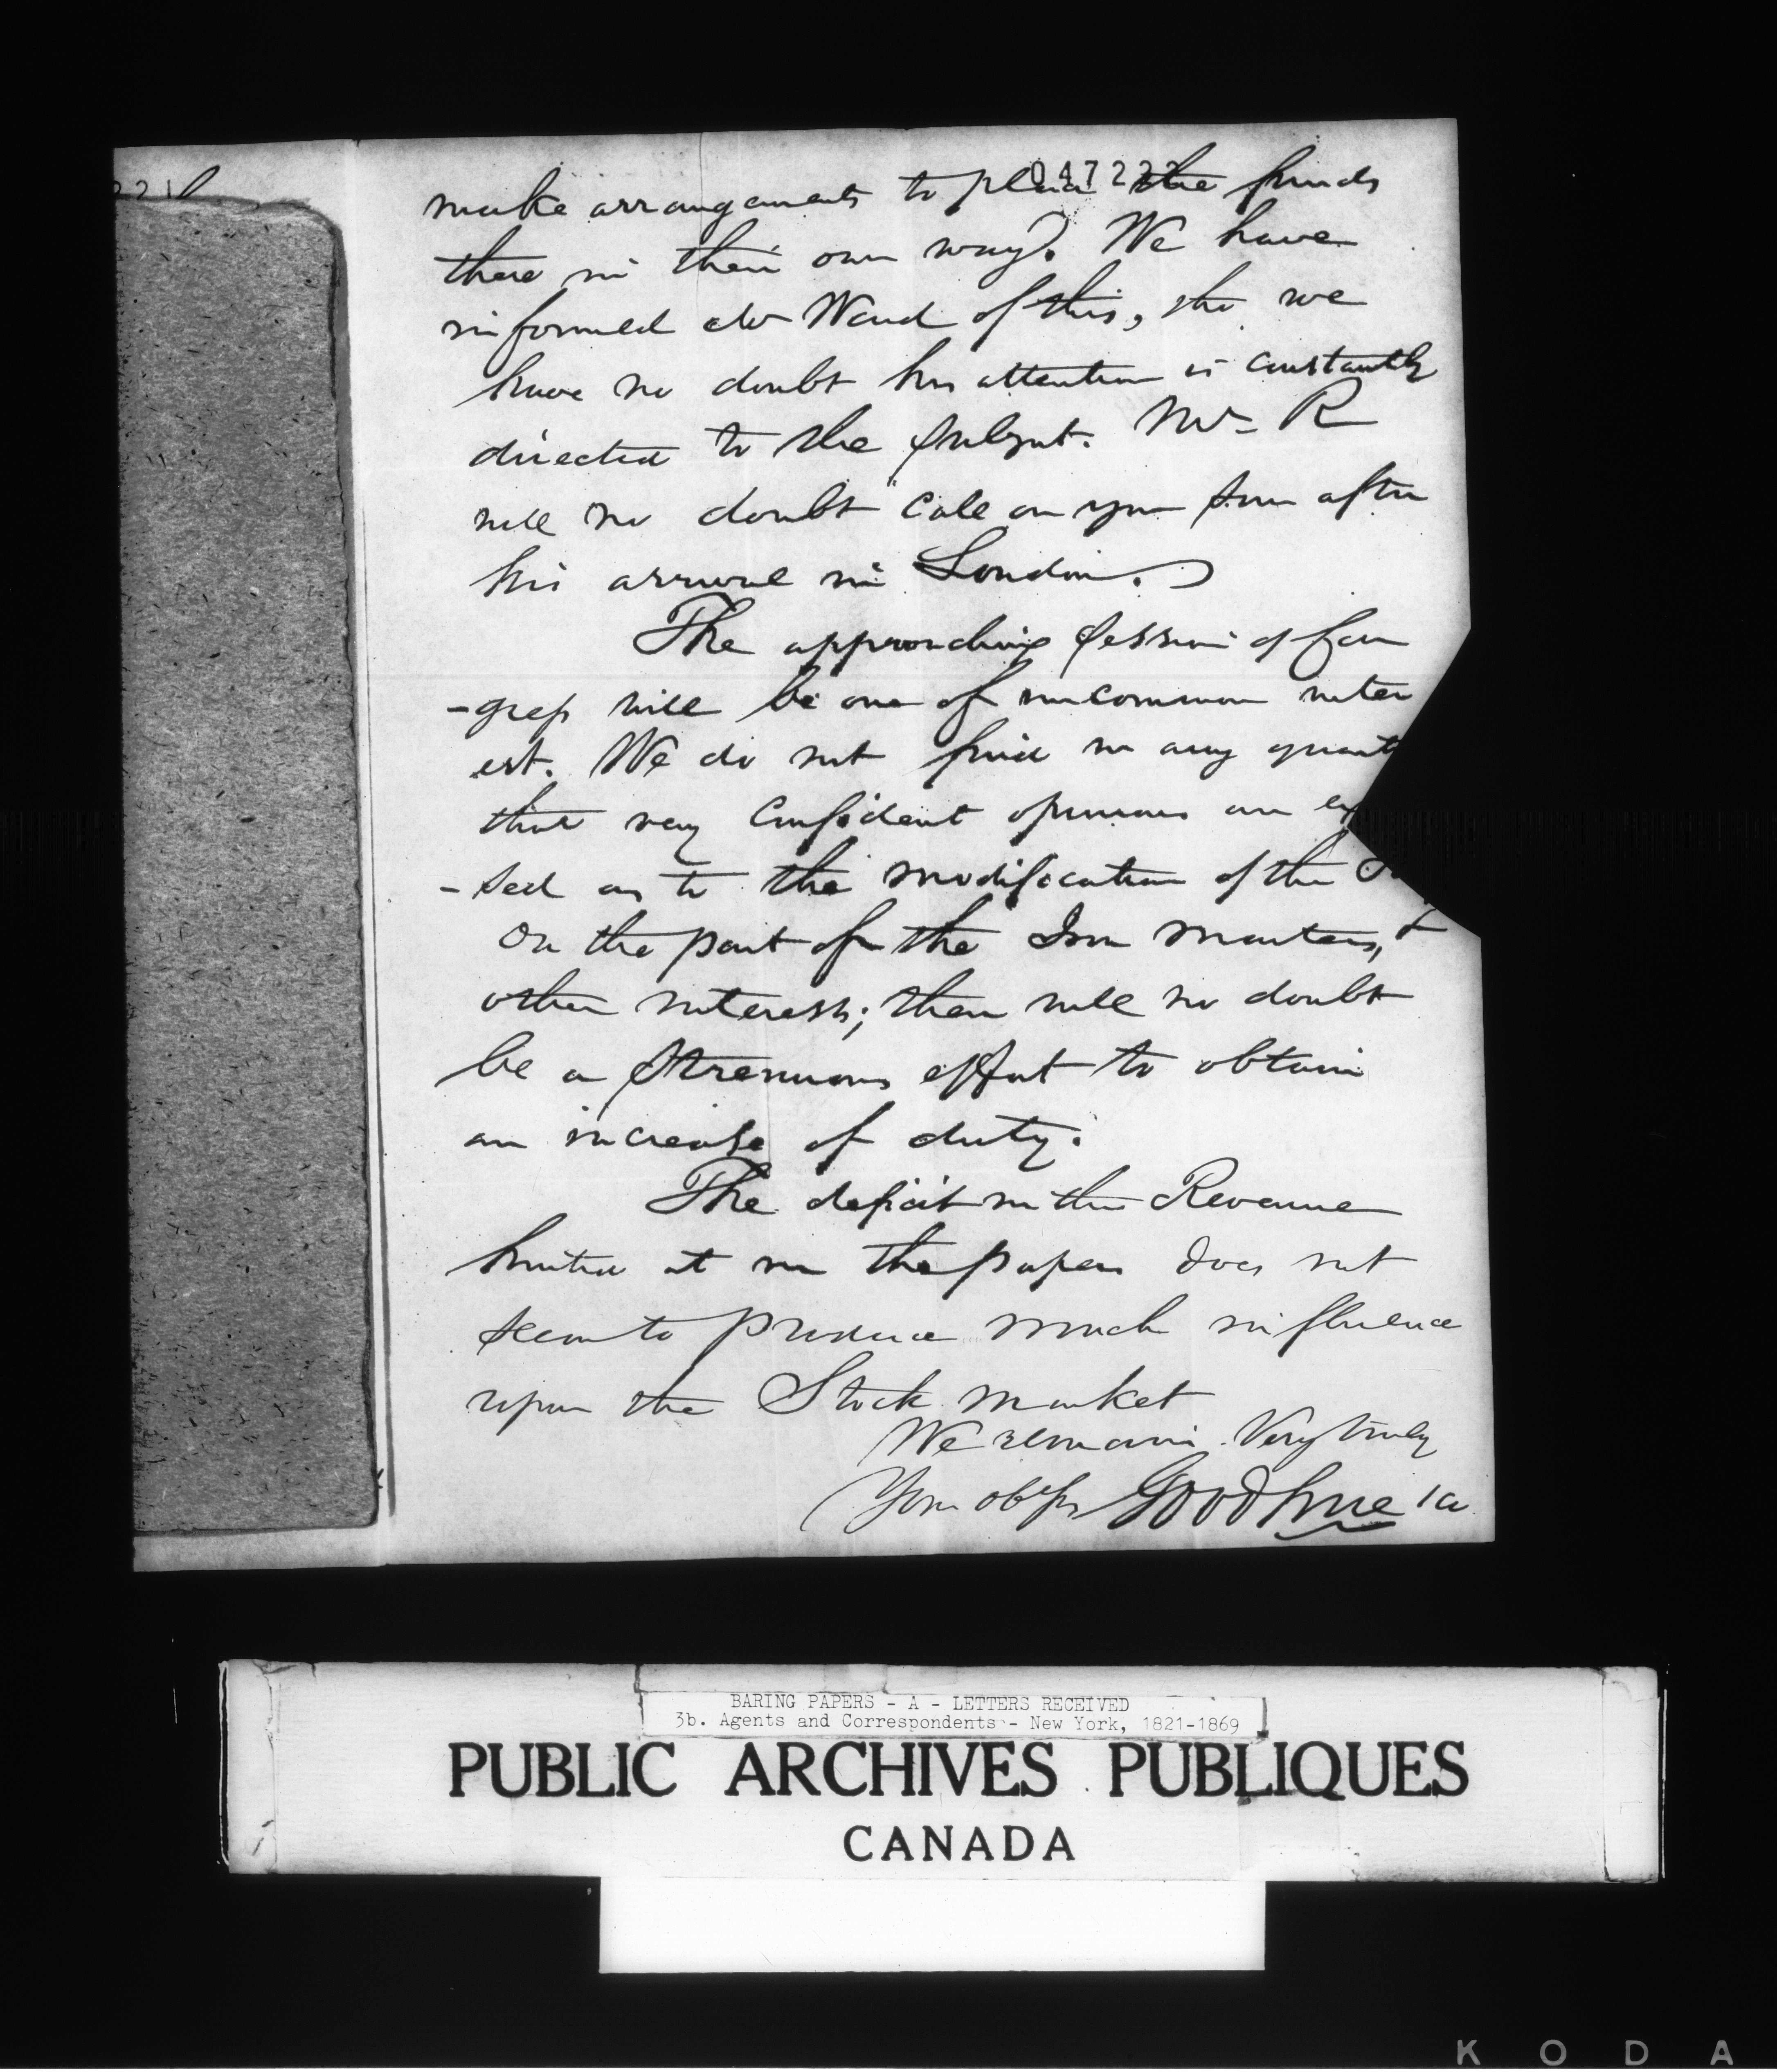 221
047222
make arrangements to place the funds
there in their own way. We have
informed Mr Ward of this, tho we
have no doubt his attention is constantly
directed to the subject. Mr R
will no doubt call on you soon after
his arrival in London.
The approaching session of Con
-gress will be one of uncommon inter
est. We do not find in any quart
that very confident opinions are ex
-sed as to the modification of the
On the part of the Iron Masters, &
other interests; there will no doubt
be a strenuous effort to obtain
an increase of duty.
The deficit in the Revenue
hinted at in the papers does not
seem to produce much influence
upon the Stock market
We remain Very truly
Your obt Ss Goodhue & Co
BARING PAPERS - A - LETTERS RECEIVED
3b. Agents and Correspondents - New York, 1821-1869
PUBLIC ARCHIVES PUBLIQUES
CANADA
K O D A